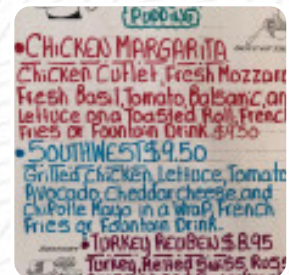 PUDDING
• CHICKEN MARGARITA
Chicken Cutlet, Fresh Mozzare
Fresh Basil, Tomato, Balsamic, an
Lettuce on a Toasted Roll, Frenc
Fries or Fountain Drink $9.50
• SOUTHWEST $9.50
Grilled Chicken, Lettuce, Tomato
Avocado, Cheddar cheese, and
Chipotle Mayo in a Wrap, French
Fries or Fountain Drink.
• TURKEY REUBEN $8.95
Turkey, Melted Swiss, Russ